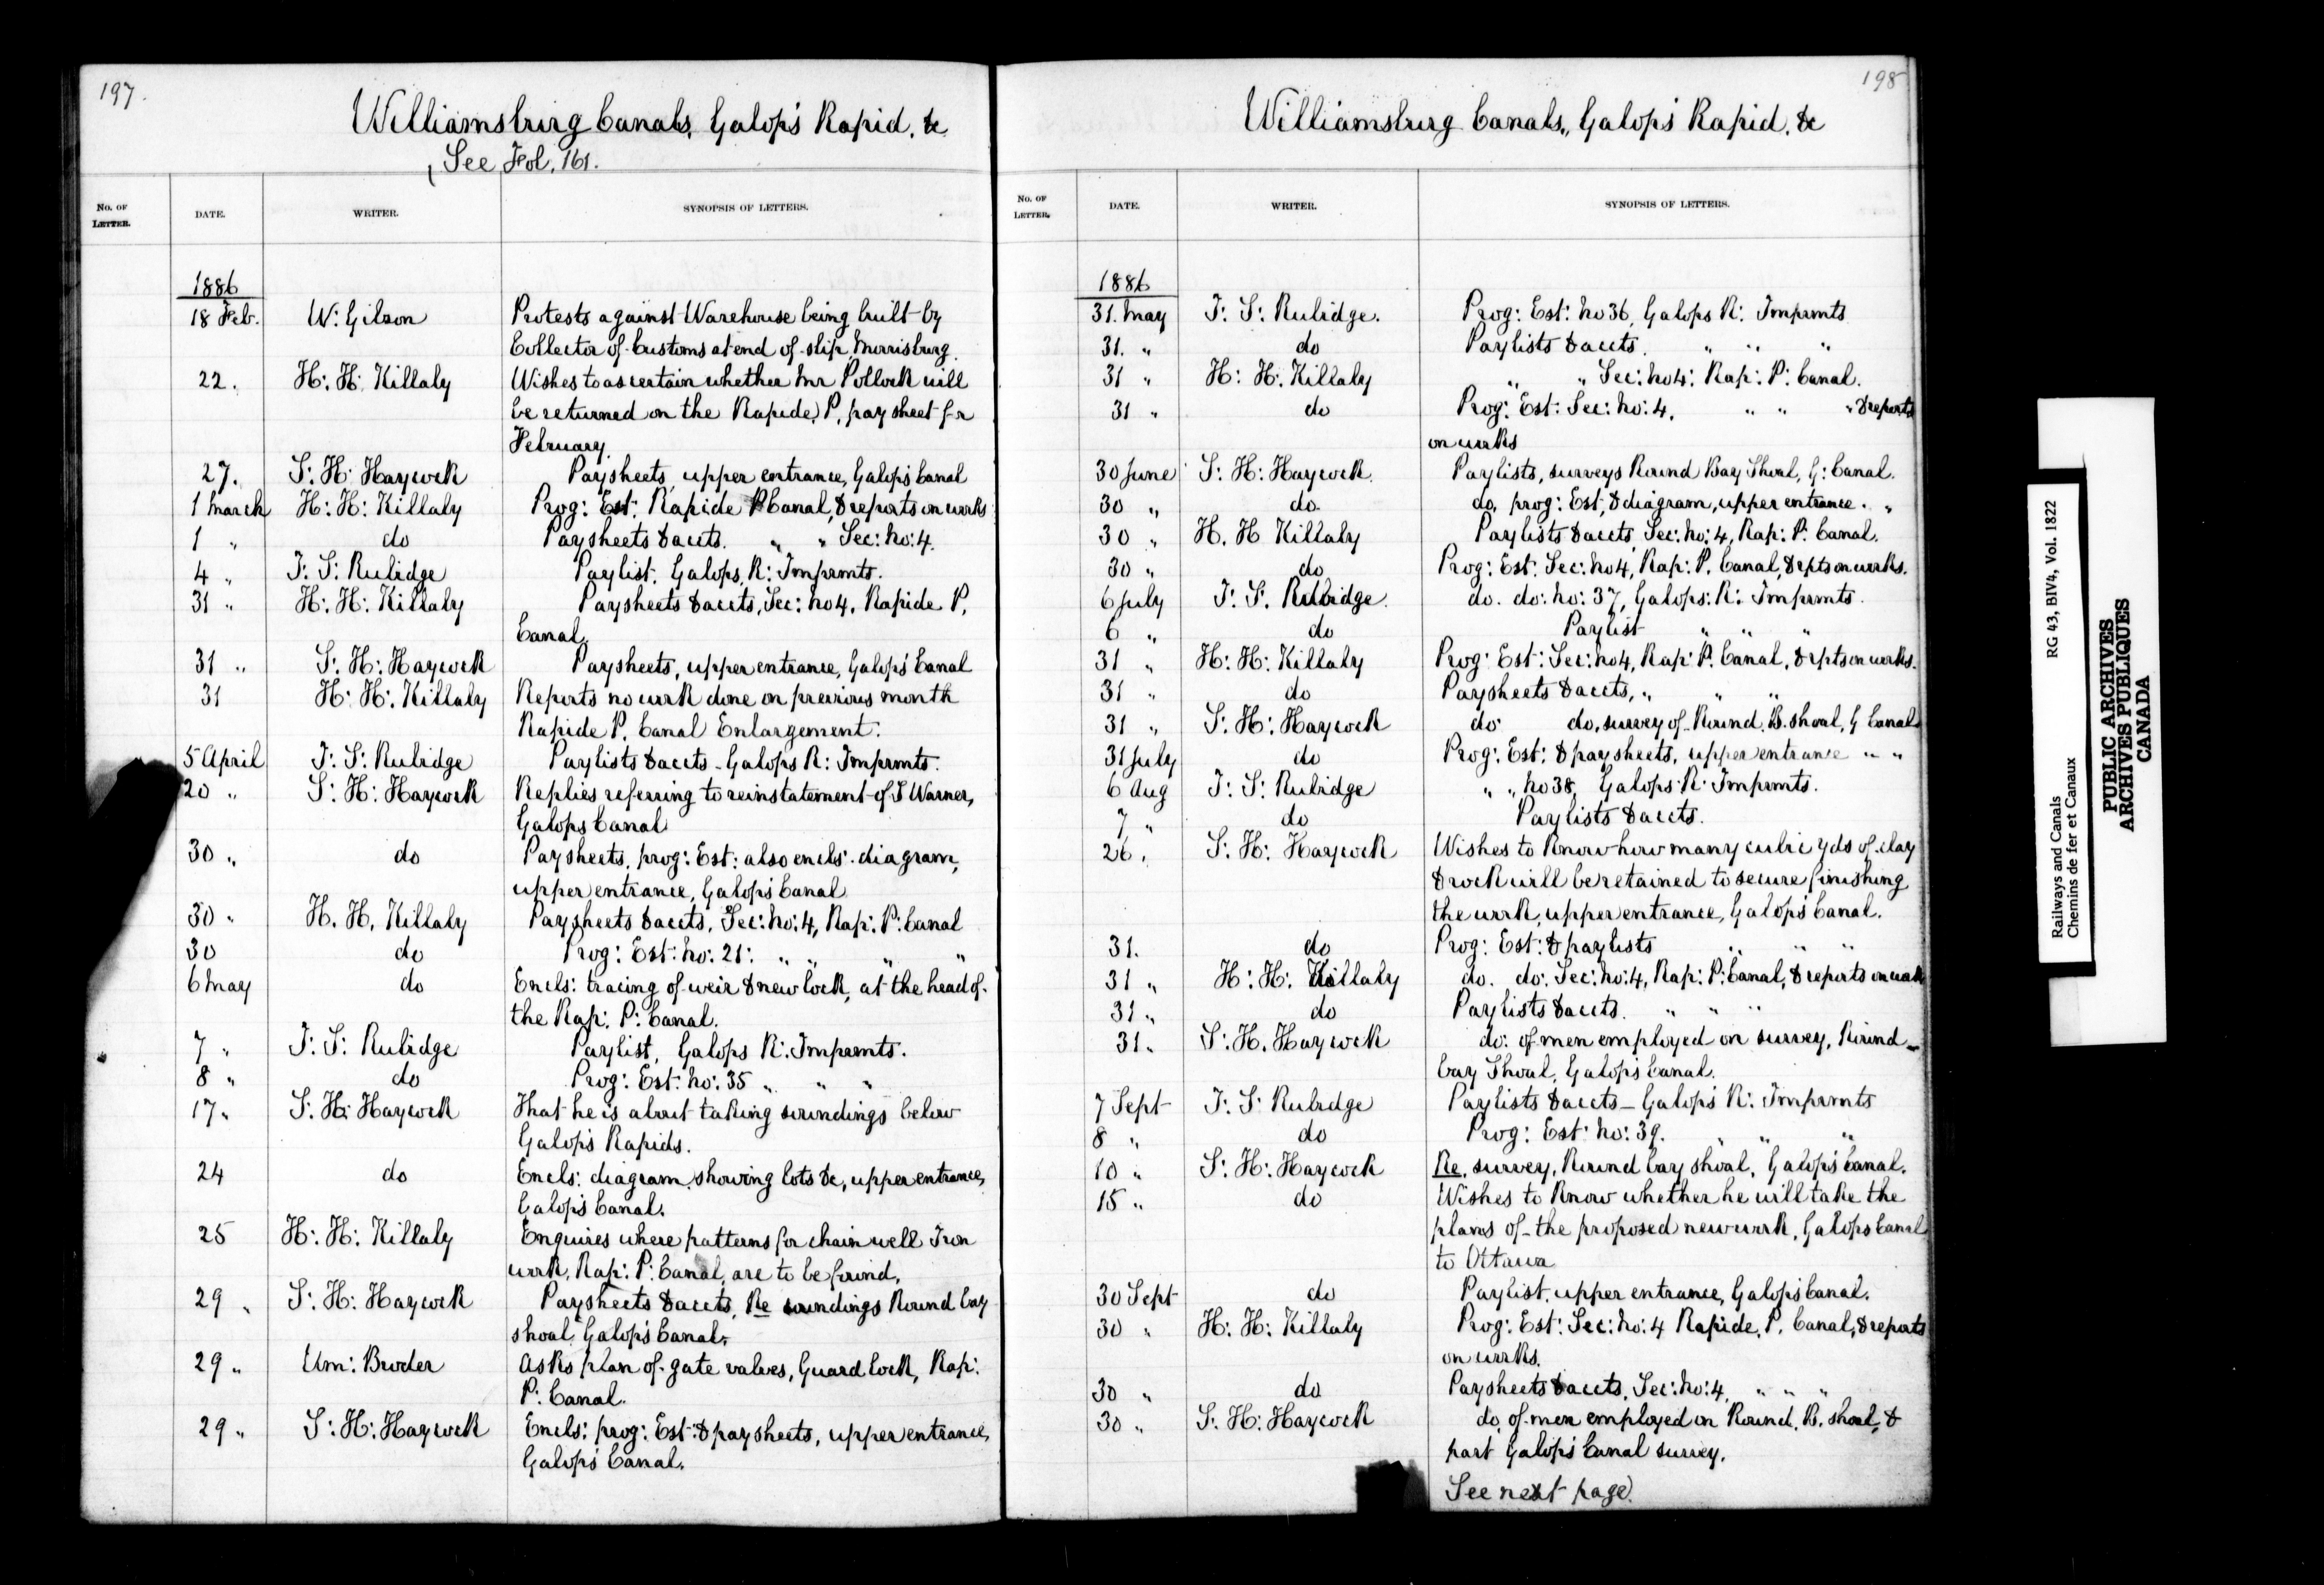 197.
Williamsburg Canals, Galops Rapid, &c
See Fol. 161.
No. of Letter. DATE. WRITER. SYNOPSIS OF LETTERS.
1886
18 Feb. W: Gibson Protests against Warehouse being built by
Collector of Customs at end of slip, Morrisburg.
22. H: H: Killaly Wishes to ascertain whether Mr Pollock will
be returned on the Rapide P. pay sheet for
February.
27. S: H: Haycock Paysheets, upper entrance, Galops Canal
1 March H: H: Killaly Prog: Est: Rapide P Canal, & reports on works
1 " do Paysheets & accts. " " Sec: No: 4.
4 " T: S: Rubidge Paylist, Galops, R: Imprmts.
31 " H: H: Killaly Paysheets & accts, Sec: No 4, Rapide P.
Canal.
31 " S: H: Haycock Paysheets, upper entrance, Galops Canal
31 H: H: Killaly Reports no work done on previous month
Rapide P. Canal Enlargement.
5 April T: S: Rubidge Paylists & accts - Galops R: Imprmts.
20 " S: H: Haycock Replies referring to reinstatement of S Warner,
Galops Canal
30 " do Paysheets, prog: Est: also encls: diagram,
upper entrance, Galops Canal
30 " H. H. Killaly Paysheets & accts, Sec: No: 4, Rap: P: Canal
30 do Prog: Est: No: 21: " " " "
6 May do Encls: tracing of weir & new lock, at the head of
the Rap: P: Canal.
7 " T: S: Rubidge Paylist, Galops R: Imprmts.
8 " do Prog: Est: No: 35 " " "
17 " S: H: Haycock That he is about taking soundings below
Galops Rapids.
24 do Encls: diagram, showing lots &c, upper entrance,
Galops Canal.
25 H: H: Killaly Enquires where patterns for chain well Iron
work, Rap: P: Canal, are to be found.
29 " S: H: Haycock Paysheets & accts, Re soundings Round bay
shoal, Galops Canal.
29 " Wm: Broder Asks plan of gate valves, Guard lock, Rap:
P: Canal.
29 " S: H: Haycock Encls: prog: Est: & paysheets, upper entrance,
Galops Canal.
198
Williamsburg Canals, Galops Rapid, &c
No. of Letter. DATE. WRITER. SYNOPSIS OF LETTERS.
1886
31. May T: S: Rubidge. Prog: Est: No 36, Galops R: Imprmts
31. " do Paylists & accts. " " "
31 " H: H: Killaly " " Sec: No 4: Rap: P: Canal.
31 " do Prog: Est: Sec: No: 4. " " " & reports
on works
30 June S: H: Haycock. Paylists, surveys Round Bay Shoal, G: Canal.
30 " do. do. prog: Est, & diagram, upper entrance. "
30 " H. H Killaly Paylists & accts, Sec: No: 4, Rap: P: Canal.
30 " do Prog: Est: Sec: No 4, Rap: P. Canal, & rpts on works.
6 July T: S. Rubidge. do. do: No: 37, Galops: R: Imprmts.
6 " do Paylist " " "
31 " H: H: Killaly Prog: Est: Sec: No 4, Rap: P. Canal, & rpts on works.
31 " do Paysheets & accts, " " "
31 " S: H: Haycock do: do, survey of Round. B. shoal, G Canal
31 July do Prog: Est: & paysheets, upper entrance " "
6 Aug T: S: Rubidge " " No 38, Galops R: Imprmts.
7 " do Paylists & accts.
26. S: H: Haycock Wishes to know how many cubic yds of clay
& rock will be retained to secure finishing
the work, upper entrance, Galops Canal.
31. do Prog: Est: & paylists " " "
31 " H: H: Killaly do. do: Sec: No: 4, Rap: P: Canal, & reports on work
31 " do Paylists & accts. " " "
31 " S: H. Haycock do: of men employed on survey, Round
bay Shoal, Galops Canal.
7 Sept T: S: Rubidge Paylists & accts - Galops R: Imprmts
8 " do Prog: Est: No: 39. " " "
10 " S: H: Haycock Re, survey, Round bay shoal, Galops Canal.
15 " do Wishes to know whether he will take the
plans of the proposed new work, Galops Canal
to Ottawa
30 Sept do Paylist, upper entrance, Galops Canal.
30 " H: H: Killaly Prog: Est: Sec: No: 4 Rapide, P. Canal, & reports
on works.
30 " do Paysheets & accts, Sec: No: 4. " " "
30 " S: H: Haycock do, of men employed on Round. B. shoal, &
part Galops Canal survey.
See next page.
Railways and Canals RG 43, BIV4, Vol. 1822
Chemins de fer et Canaux
PUBLIC ARCHIVES
ARCHIVES PUBLIQUES
CANADA